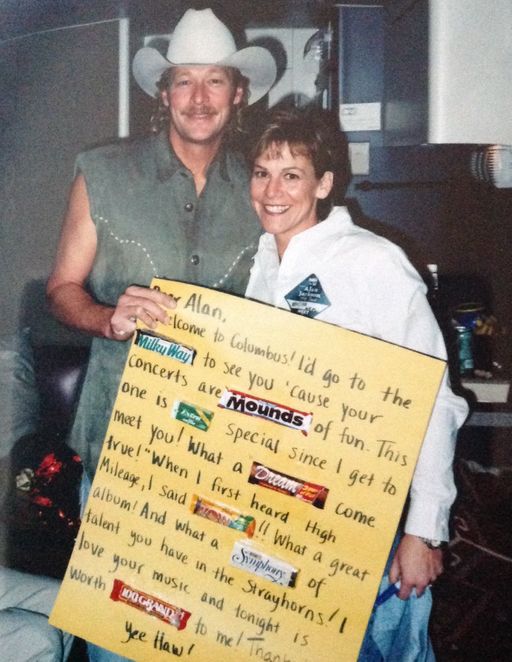 Dear Alan,
Welcome to Columbus! I'd go to the
Milky Way to see you 'cause your
concerts are Mounds of fun. This
one is Extra special since I get to
meet you! What a Dream come
true! "When I first heard High
Mileage, I said !! What a great
album! And what a Symphony of
talent you have in the Strayhorns! I
love your music and tonight is
worth 100 GRAND to me! Thank
Yee Haw!
Alan
Jackson